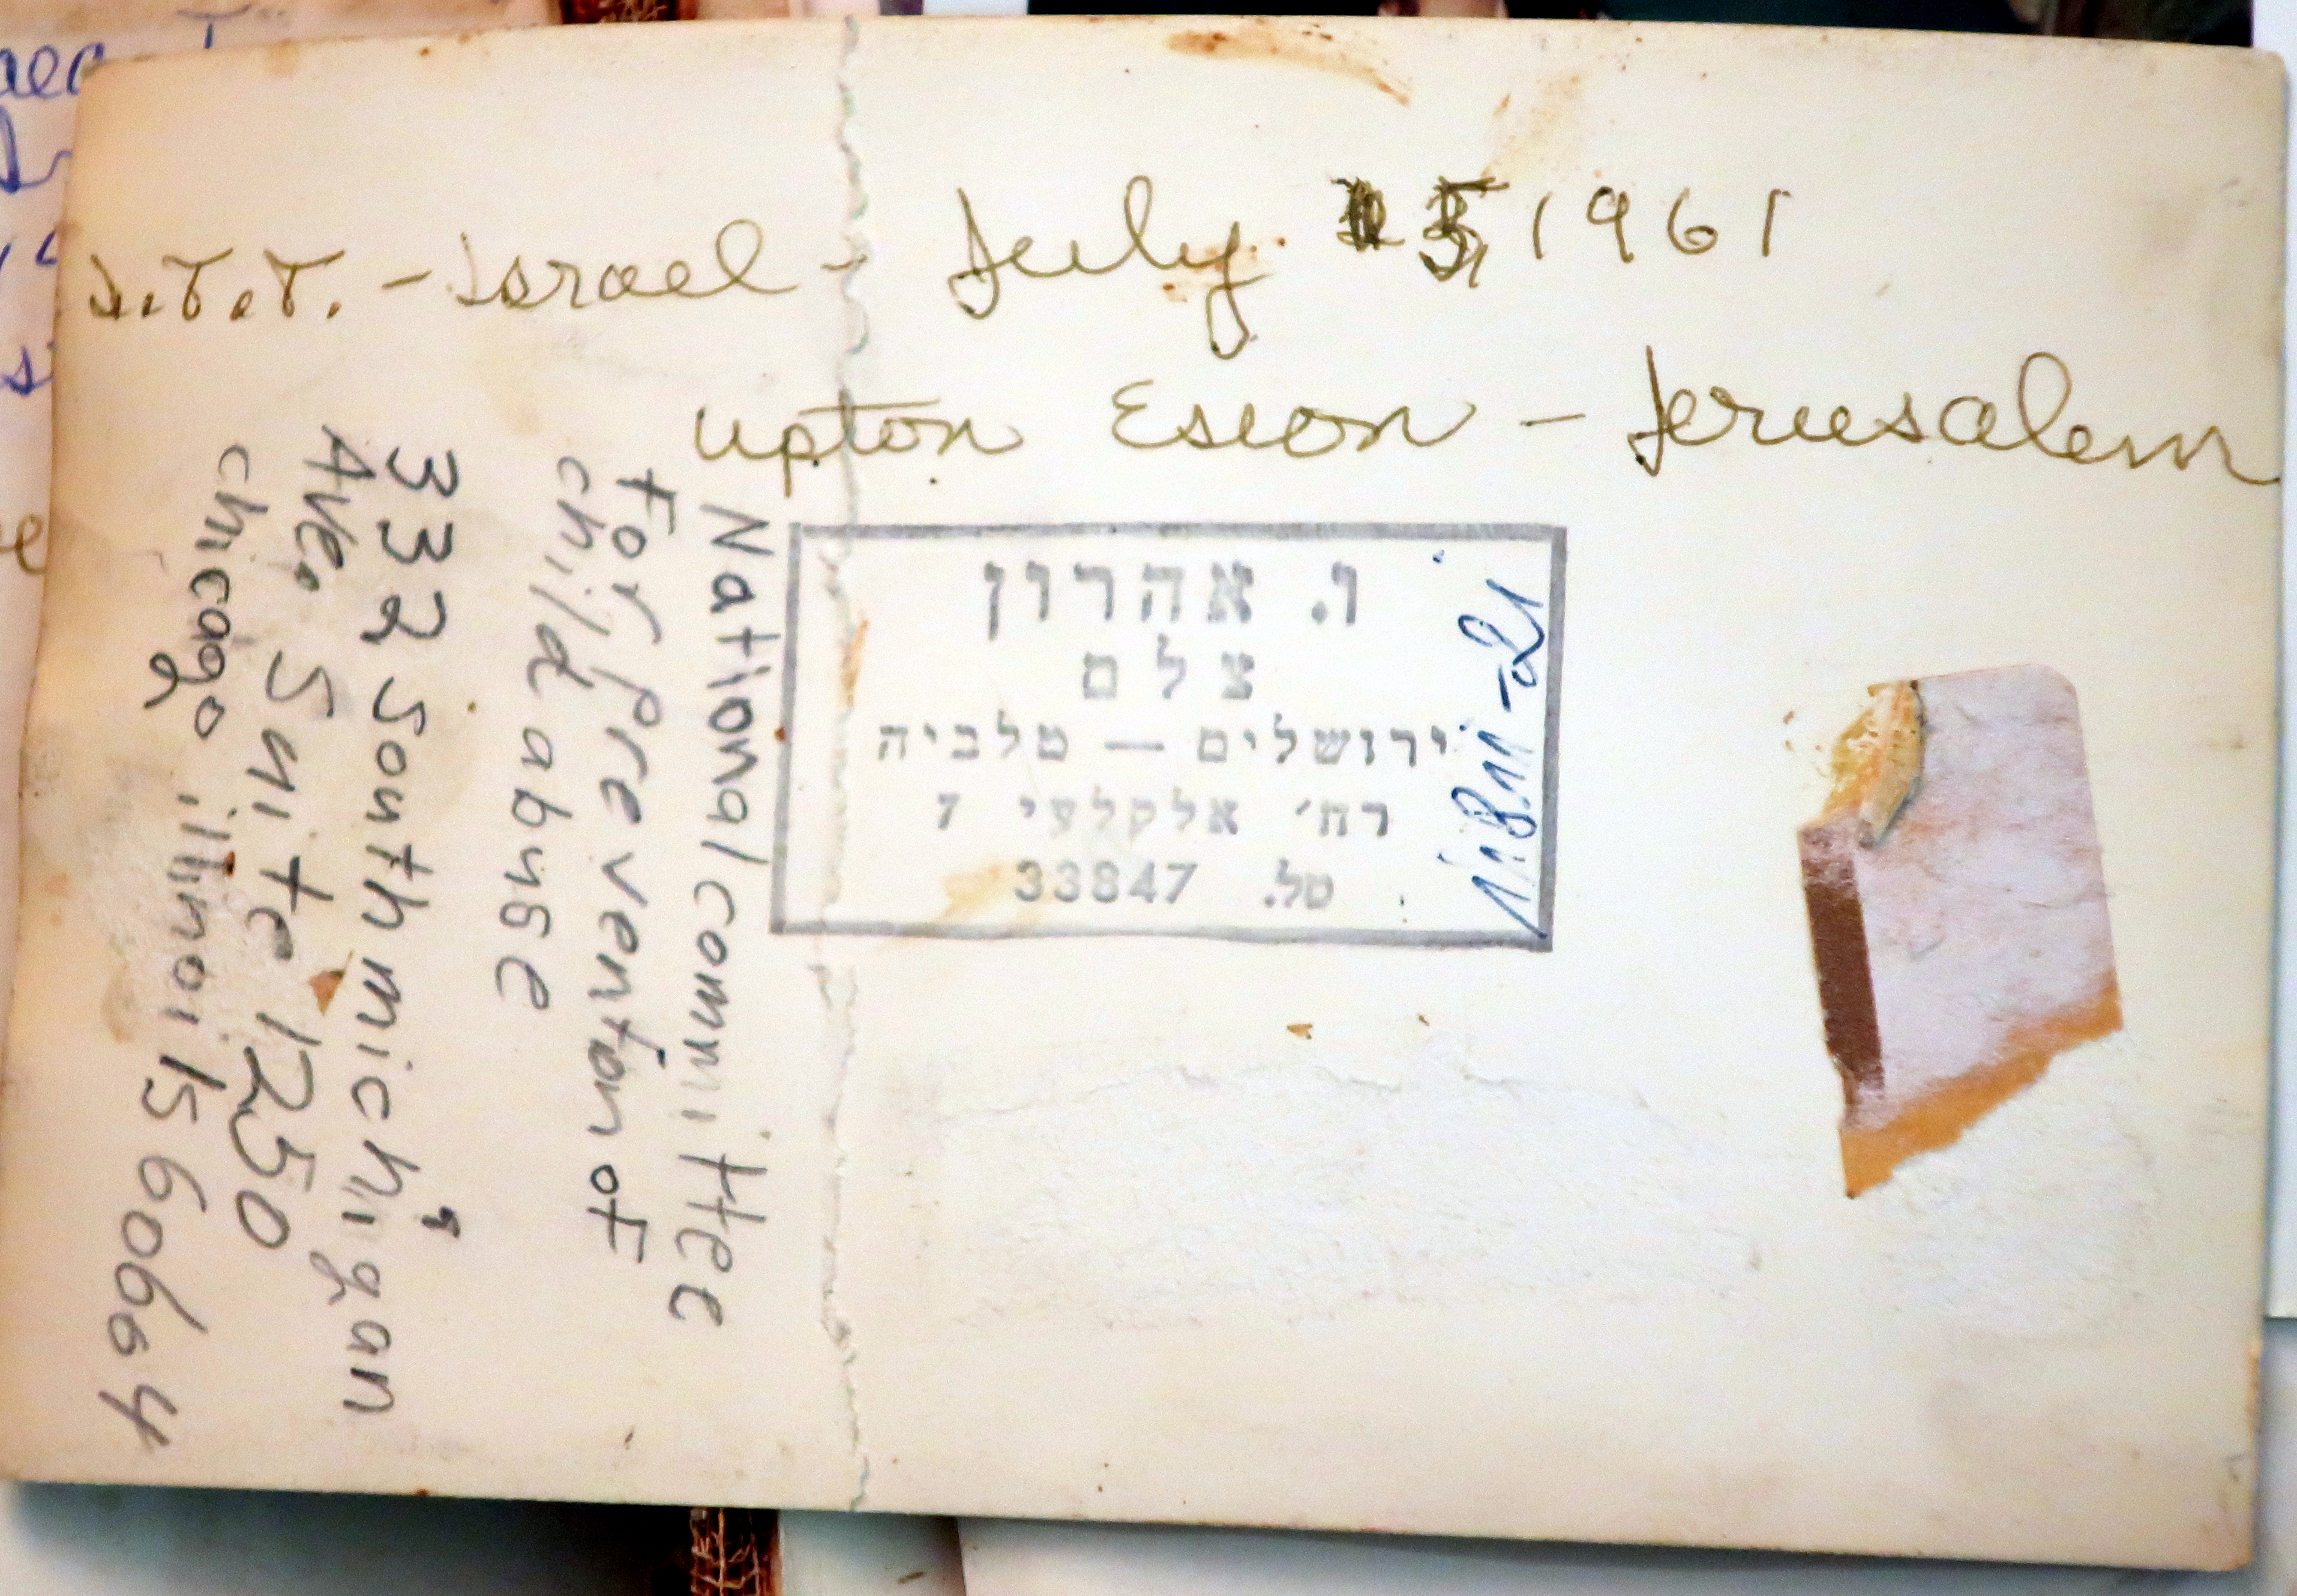 I.T.T. - Israel - July 5, 1961
Upton Esion - Jerusalem
ו. אהרון
צלם
ירושלים — טלביה
רח׳ אלקלעי 7
טל. 33847
11811-21
National committee
For Prevention of
child abuse
332 South michigan
Ave. Suite 1250
chicago illinois 60604